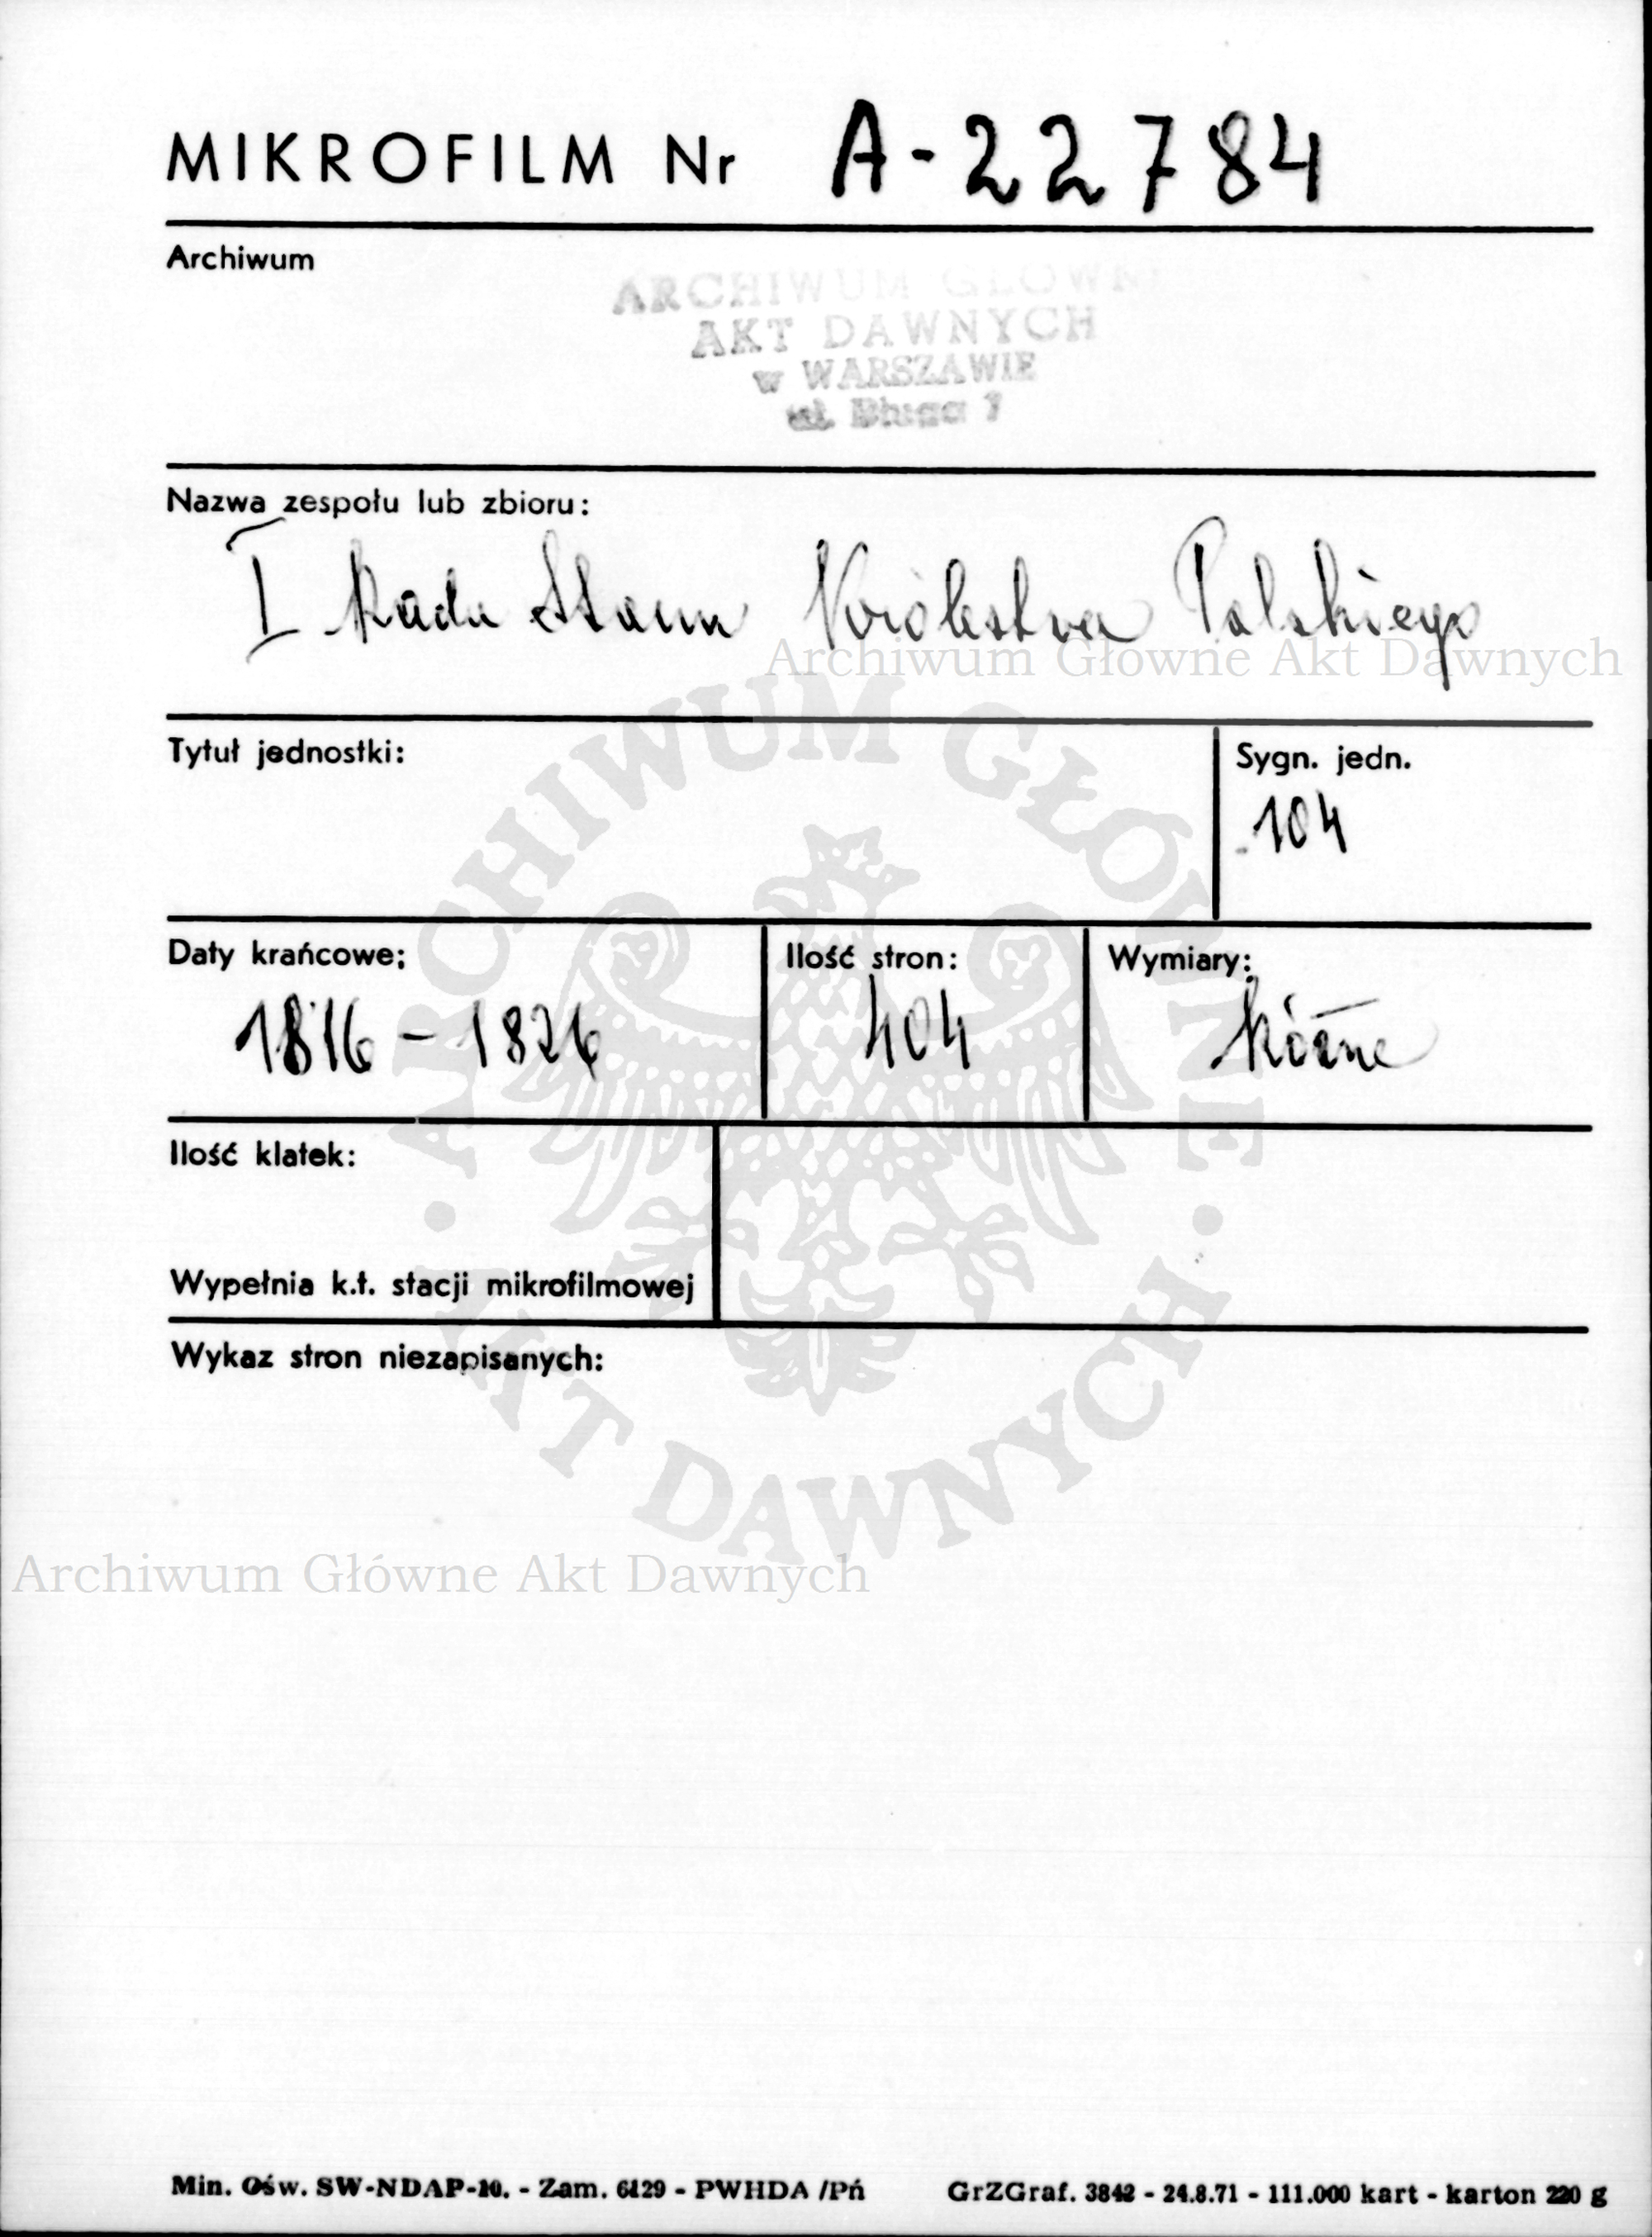 MIKROFILM Nr A-22784
Archiwum
ARCHIWUM GŁÓWN
AKT DAWNYCH
w WARSZAWIE
ul. Długa 7
Nazwa zespołu lub zbioru:
I Rada Stanu Królestwa Polskiego
Archiwum Główne Akt Dawnych
Tytuł jednostki:
Sygn. jedn.
104
Daty krańcowe:
1816 - 1826
Ilość stron:
404
Wymiary:
różne
Ilość klatek:
Wypełnia k.t. stacji mikrofilmowej
Wykaz stron niezapisanych:
ARCHIWUM GŁÓWNE
AKT DAWNYCH
Archiwum Główne Akt Dawnych
Min. Ośw. SW-NDAP-10. - Zam. 6129 - PWHDA /Pń
GrZGraf. 3842 - 24.8.71 - 111.000 kart - karton 220 g